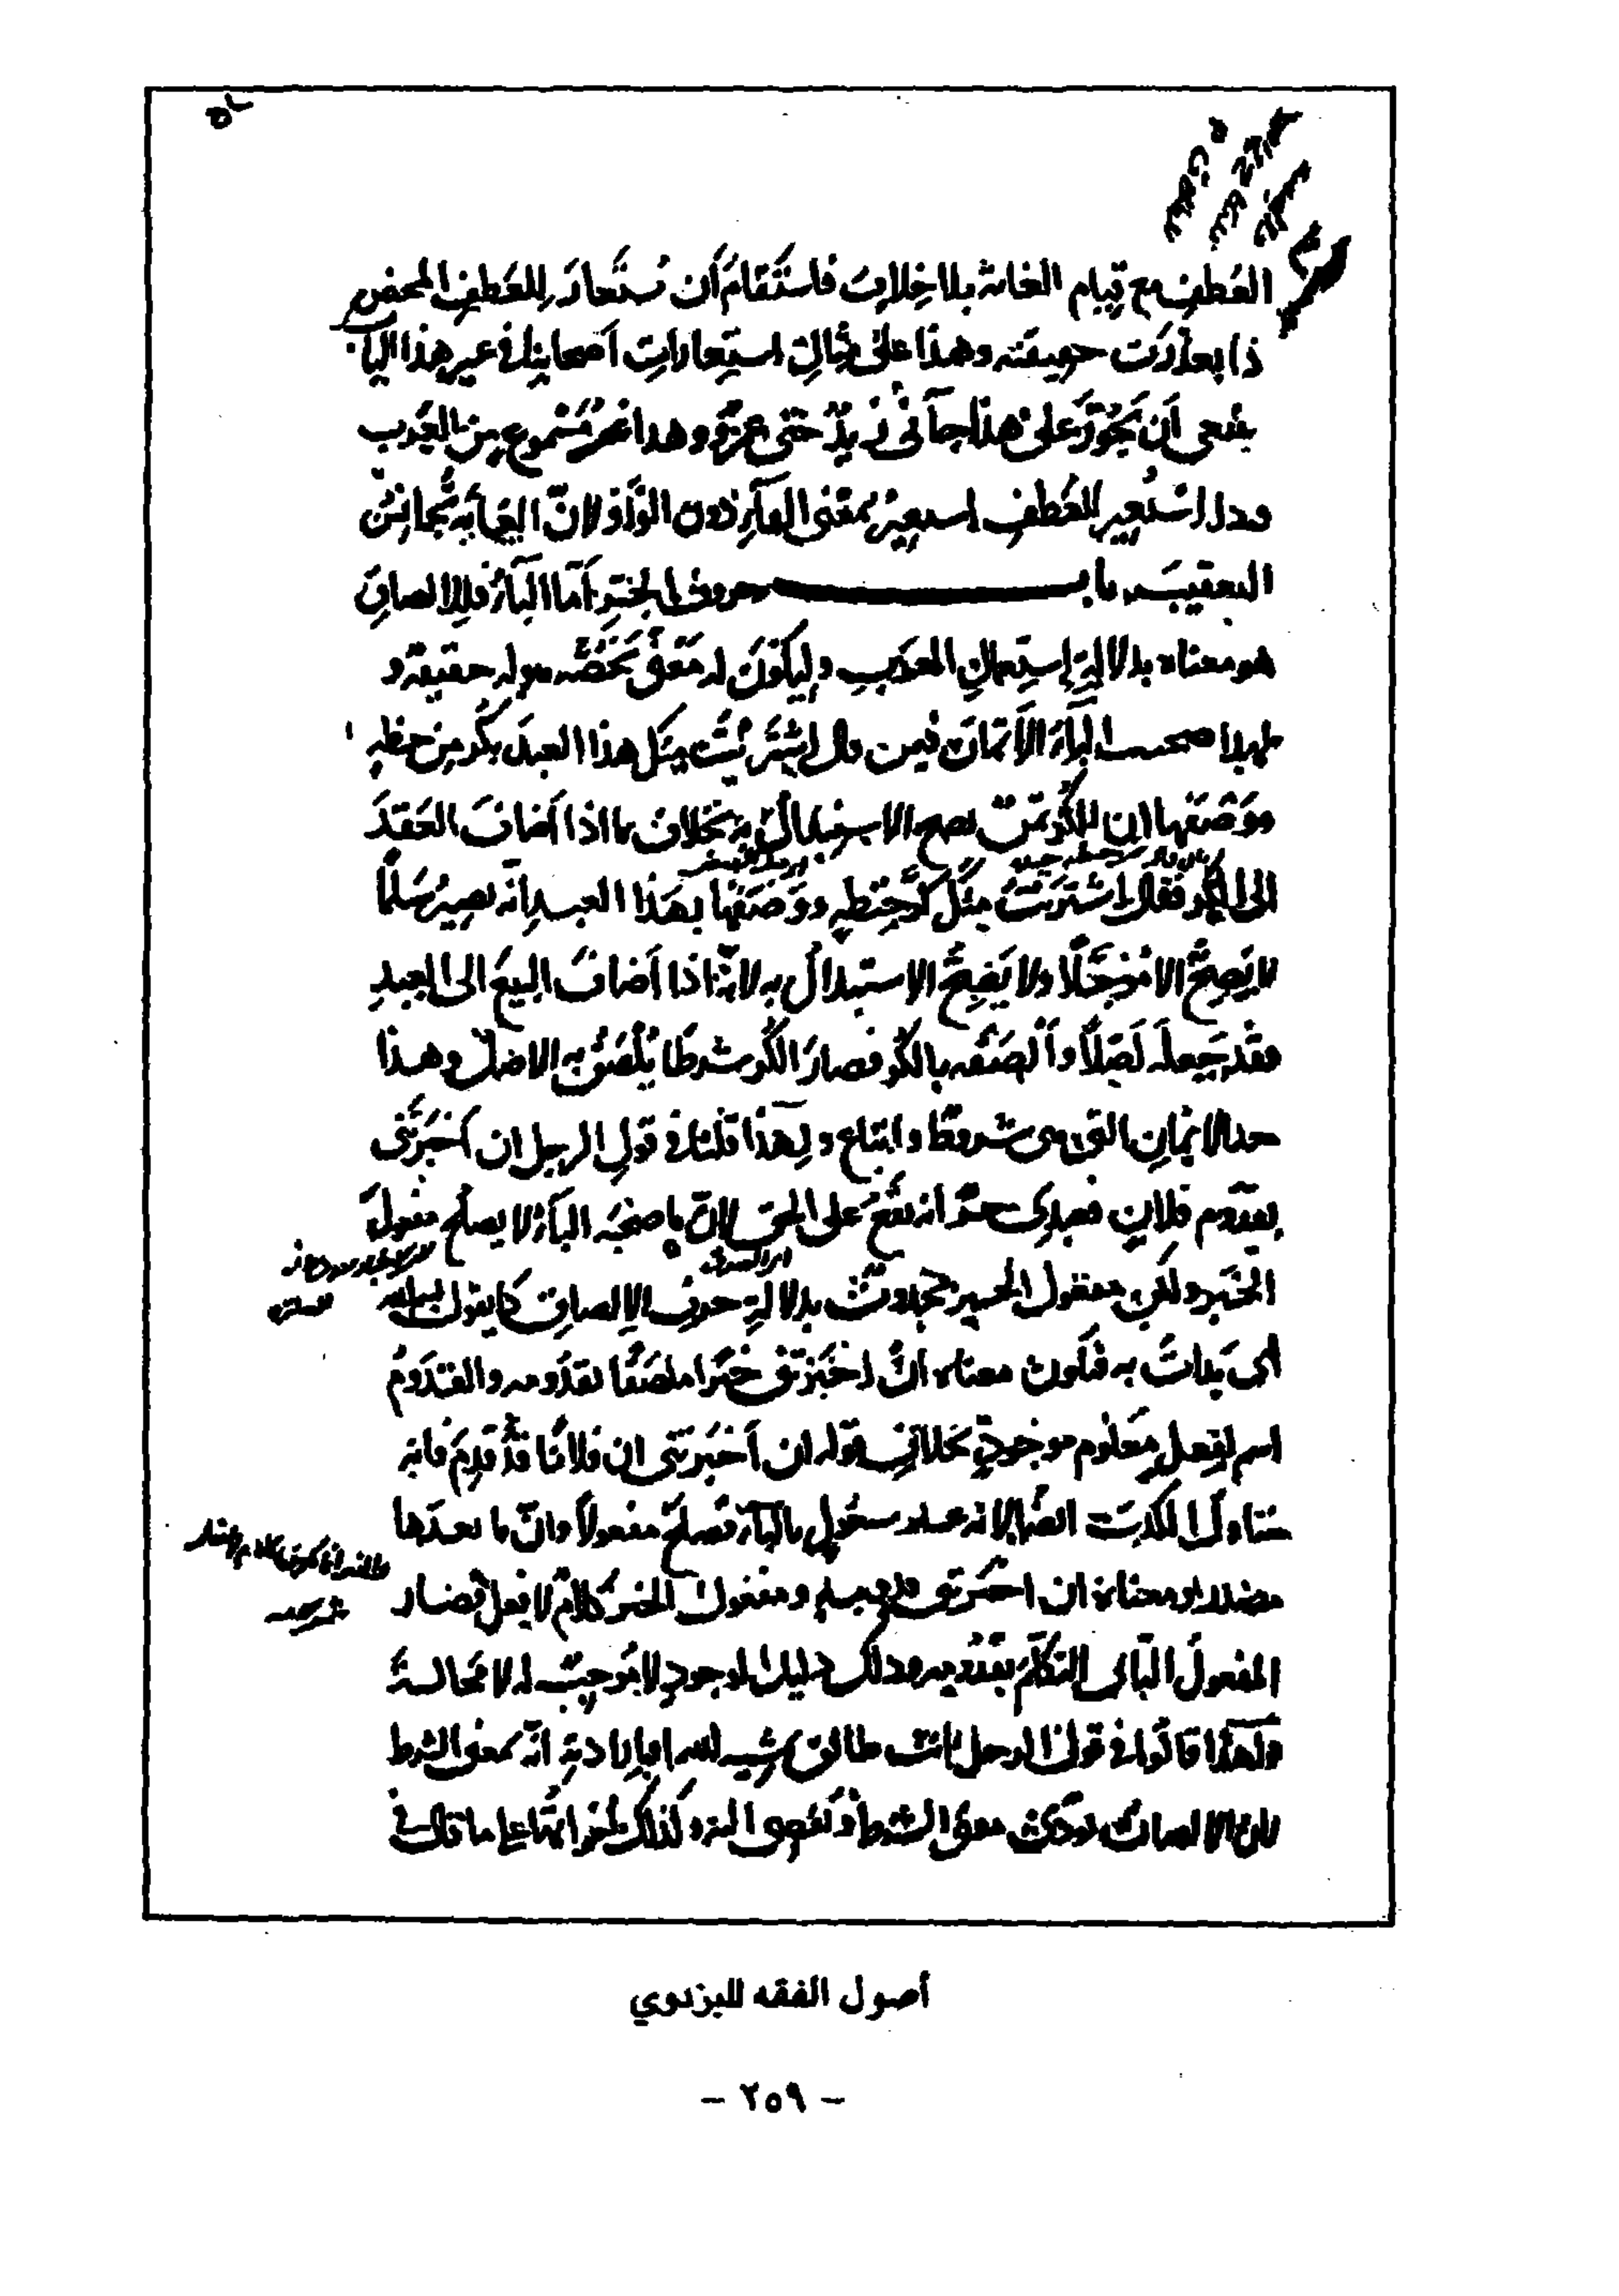 العطف مع قيام الغاية بلا خلاف فاستقام أن يستعار للعطف المحض
اذا تعذرت حقيقته وهذا على مثال استعارات أصحابنا في غير هذا الباب
ينبغي أن يجوز على هذا جاءني زيد حتى عمرو وهذا غير مسموع من العرب
واذا استعير للعطف استعير بمعنى الفاء دون الواو لان الغاية تجانس
التعقيب باب حروف الجر أما الباء فللالصاق
هو معناه بدلالة استعمال العرب وليكون له معنى يخصه هو له حقيقة و
لهذا صحبت الباء الأثمان فيمن قال اشتريت منك هذا العبد بكر من حنطة
ووصفها ان الكر ثمن يصح الاستبدال به بخلاف ما اذا أضاف العقد
الى الكر فقال اشتريت منك كر حنطة ووصفها بهذا العبد انه يصير سلما
لا يصح الا مؤجلا ولا يصح الاستبدال به لانه اذا أضاف البيع الى العبد
فقد جعله أصلا وألصقه بالكر فصار الكر شرطا يلصق به الاصل وهذا
حد الاثمان التي هي شروط واتباع ولهذا قلنا في قول الرجل ان أخبرتني
بقدوم فلان فعبدي حر انه يقع على الحق لان ما صحبه الباء لا يصلح مفعول
الخبر ولكن مفعول الخبر محذوف بدلالة حرف الالصاق كما يقول بسم الله
أي بدأت به فيكون معناه ان أخبرتني خبرا ملصقا بقدومه والقدوم
اسم لفعل معلوم موجود بخلاف قوله ان أخبرتني ان فلانا قد قدم فانه
يتناول الكذب أيضا لانه غير مشغول بالباء فصلح مفعولا وان ما بعدها
مصدر ومعناه ان أخبرتني قدومه ومفعول الخبر كلام لا فعل فصار
المفعول الثاني التكلم بقدومه وذلك دليل الوجود لا موجب له لا محالة
ولهذا قالوا في قول الرجل انت طالق بمشية الله أو بارادته انه بمعنى الشرط
لان الالصاق يؤدي معنى الشرط ويفضي اليه وكذلك أخواتها على ما قال في
أصول الفقه للبزدوي
- ٢٥٩ -